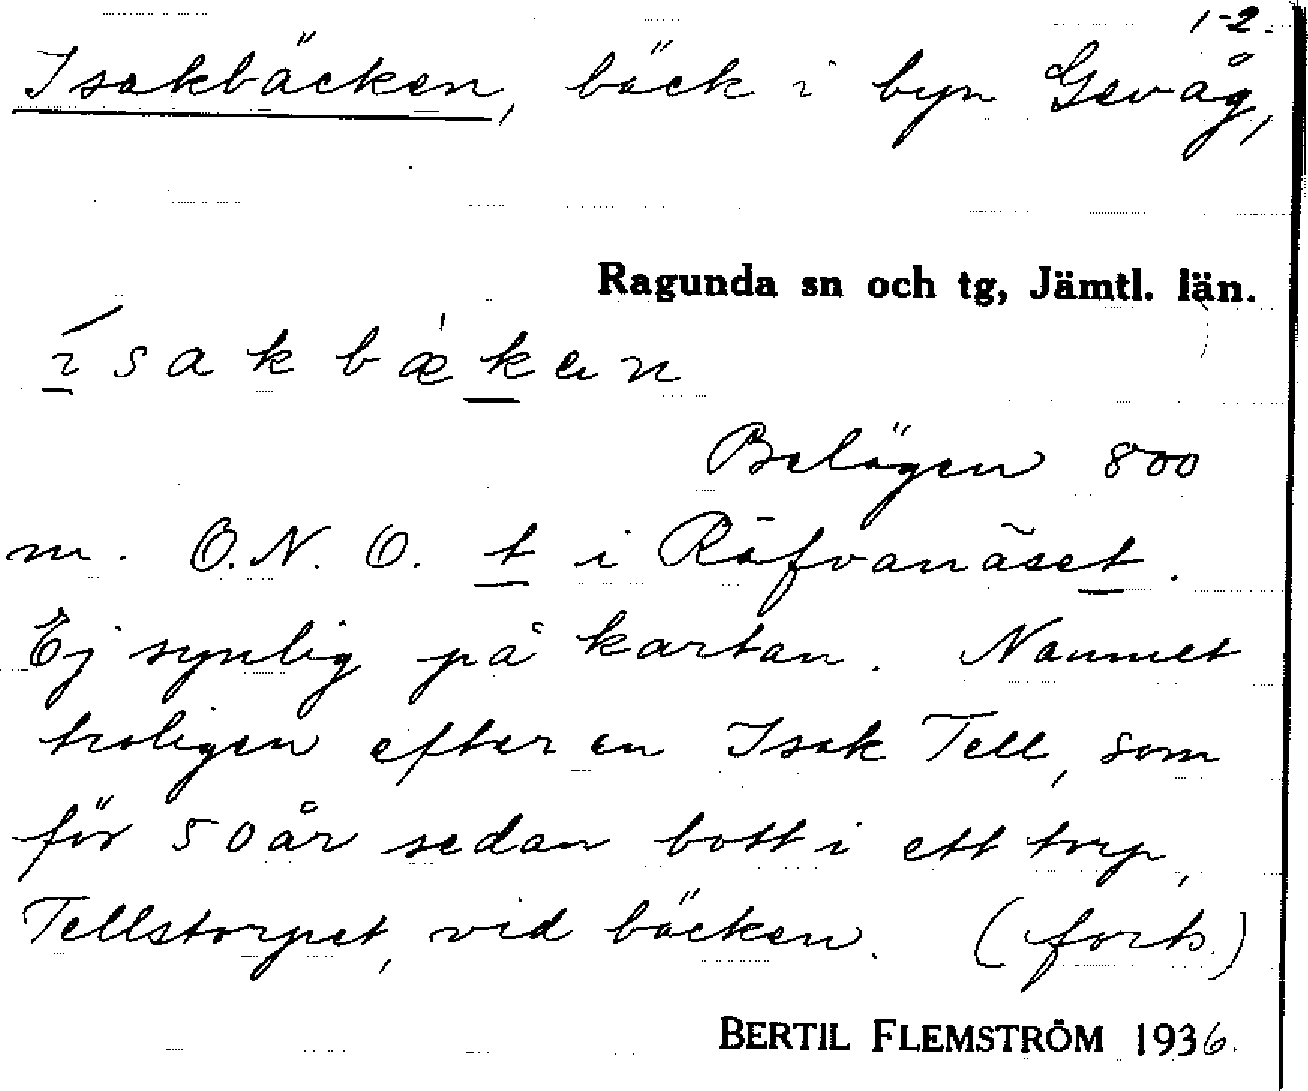 1-2.
Isakbäcken, bäck i byn Gevåg,
Ragunda sn och tg, Jämtl. län.
ísakbækan
Belägen 800
m. O.N.O. t i Räfvanäset.
Ej synlig på kartan. Namnet
troligen efter en Isak Tell, som
för 50 år sedan bott i ett torp,
Tellstorpet, vid bäcken. (forts.)
BERTIL FLEMSTRÖM 1936.